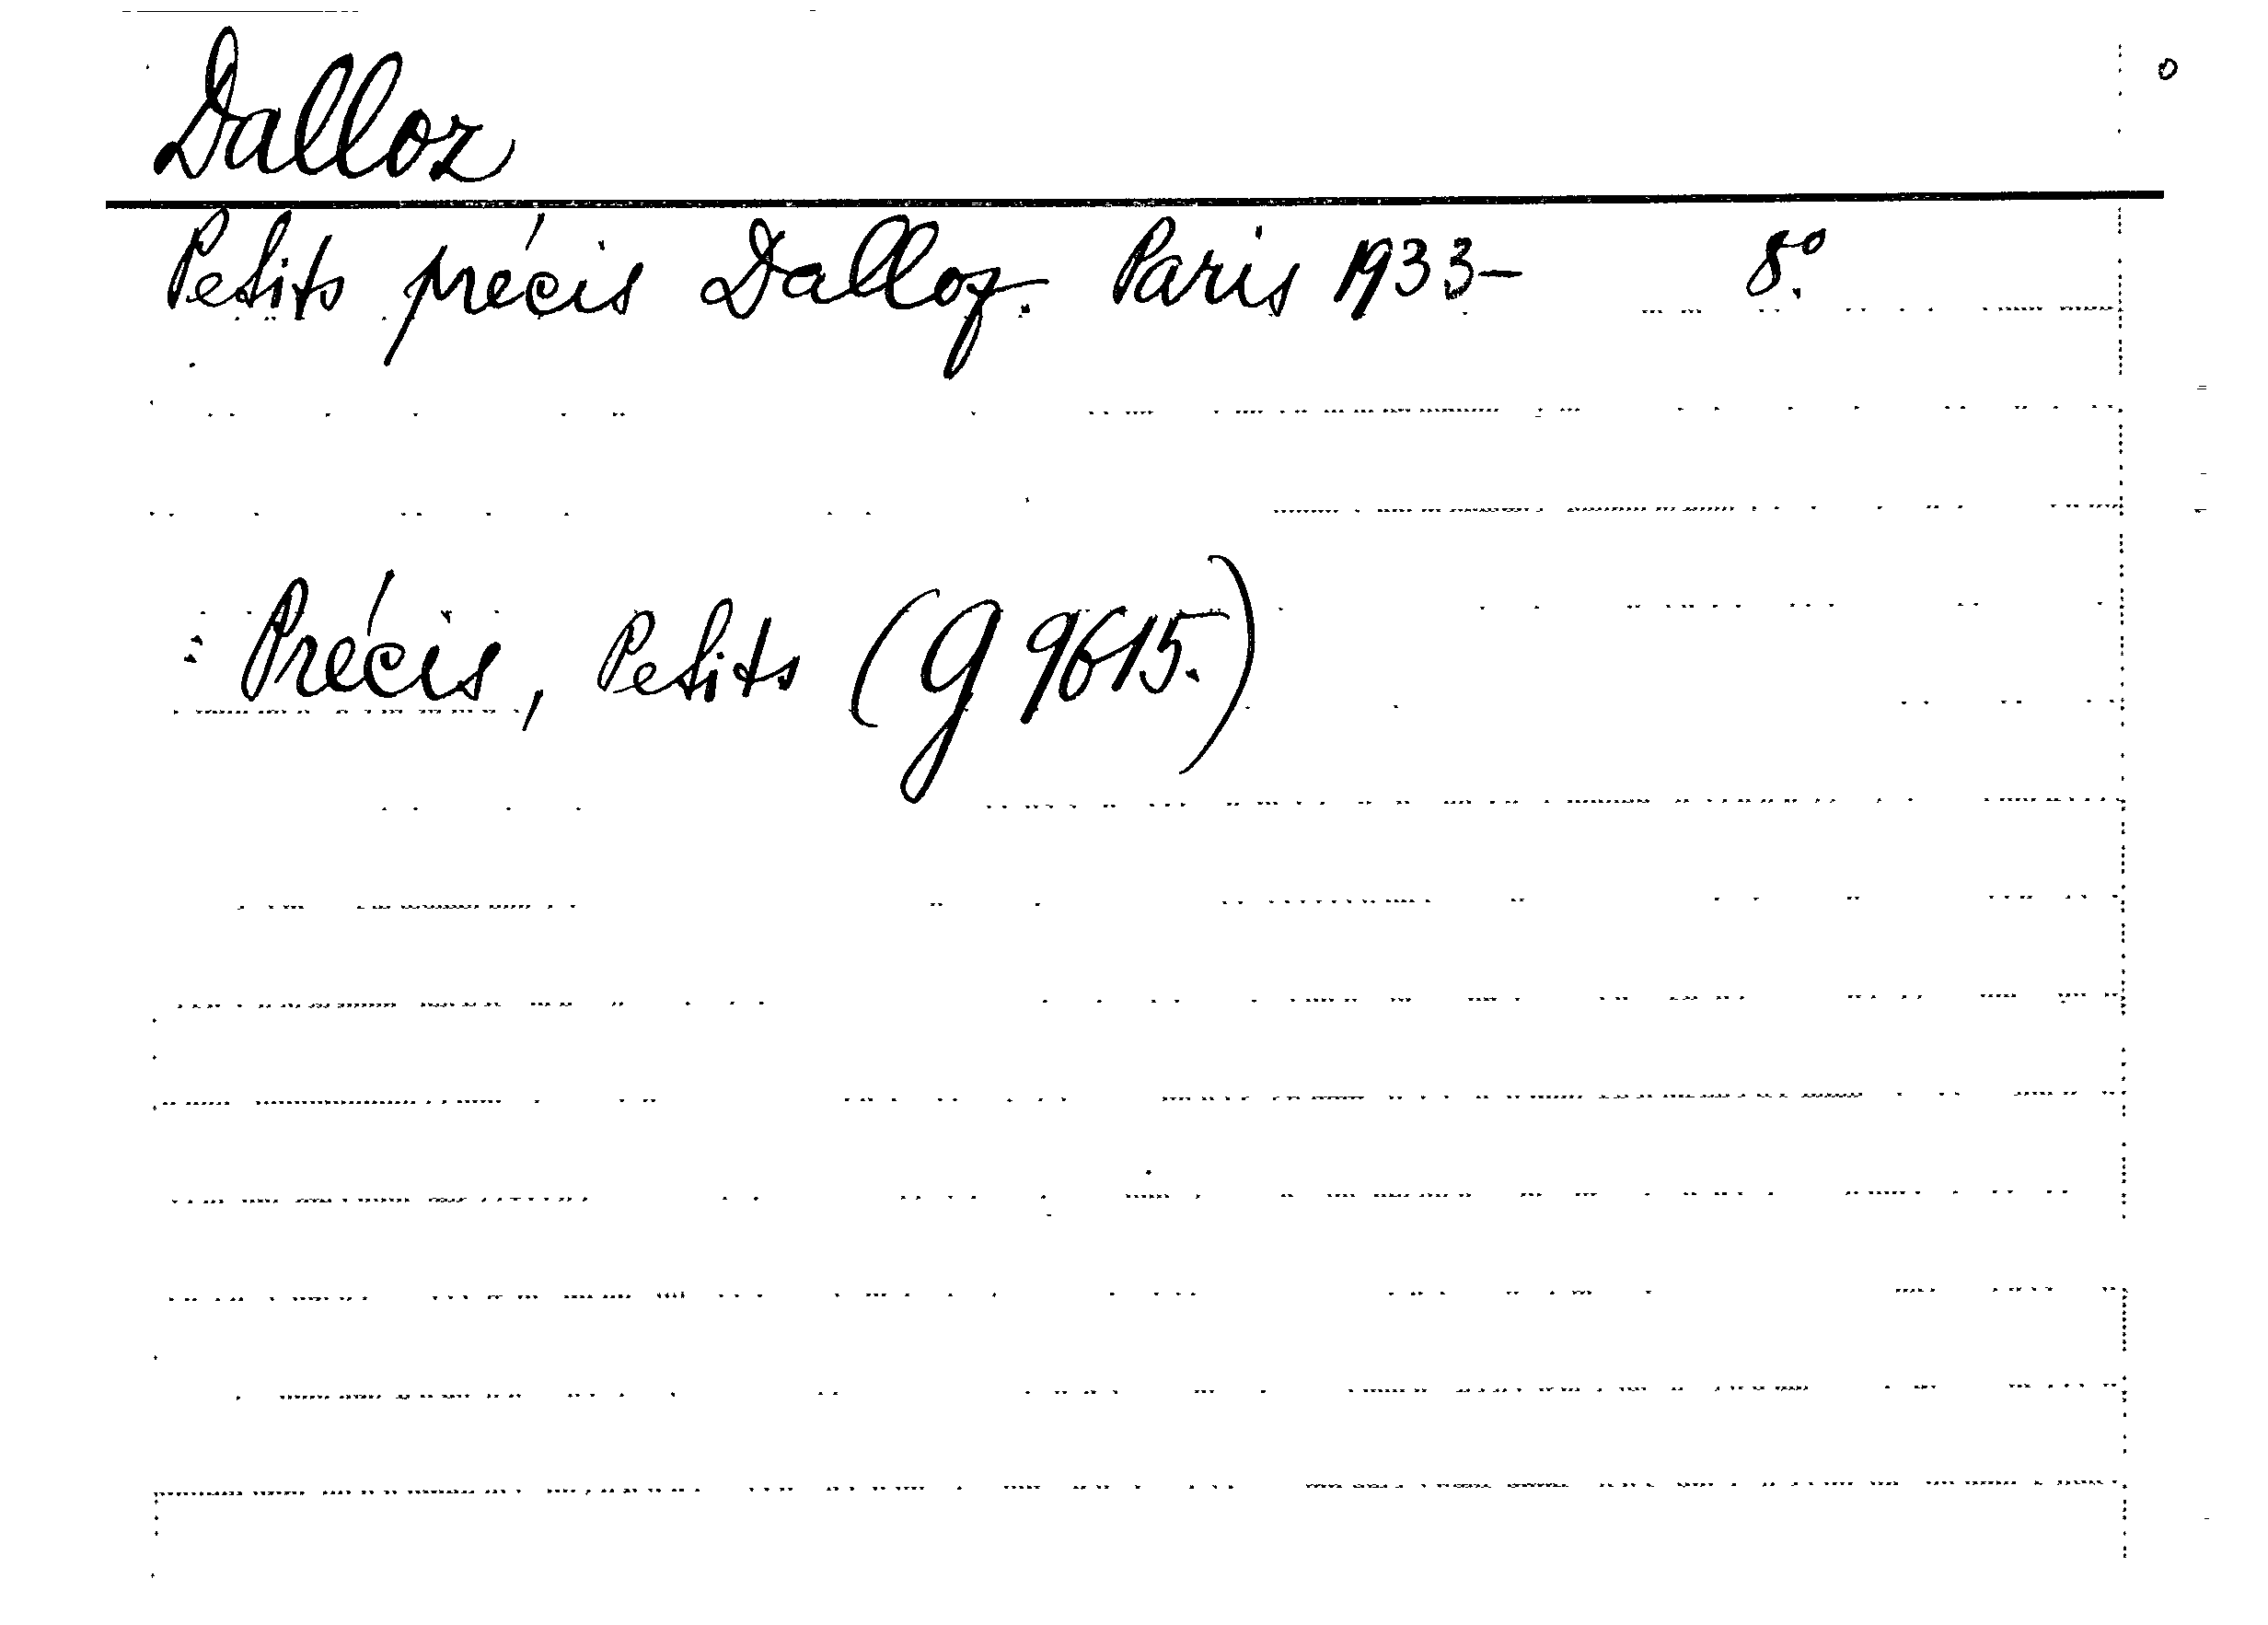 Dalloz
Petits précis Dalloz. Paris 1933- 8.º
: Précis, Petits (G 9615.)